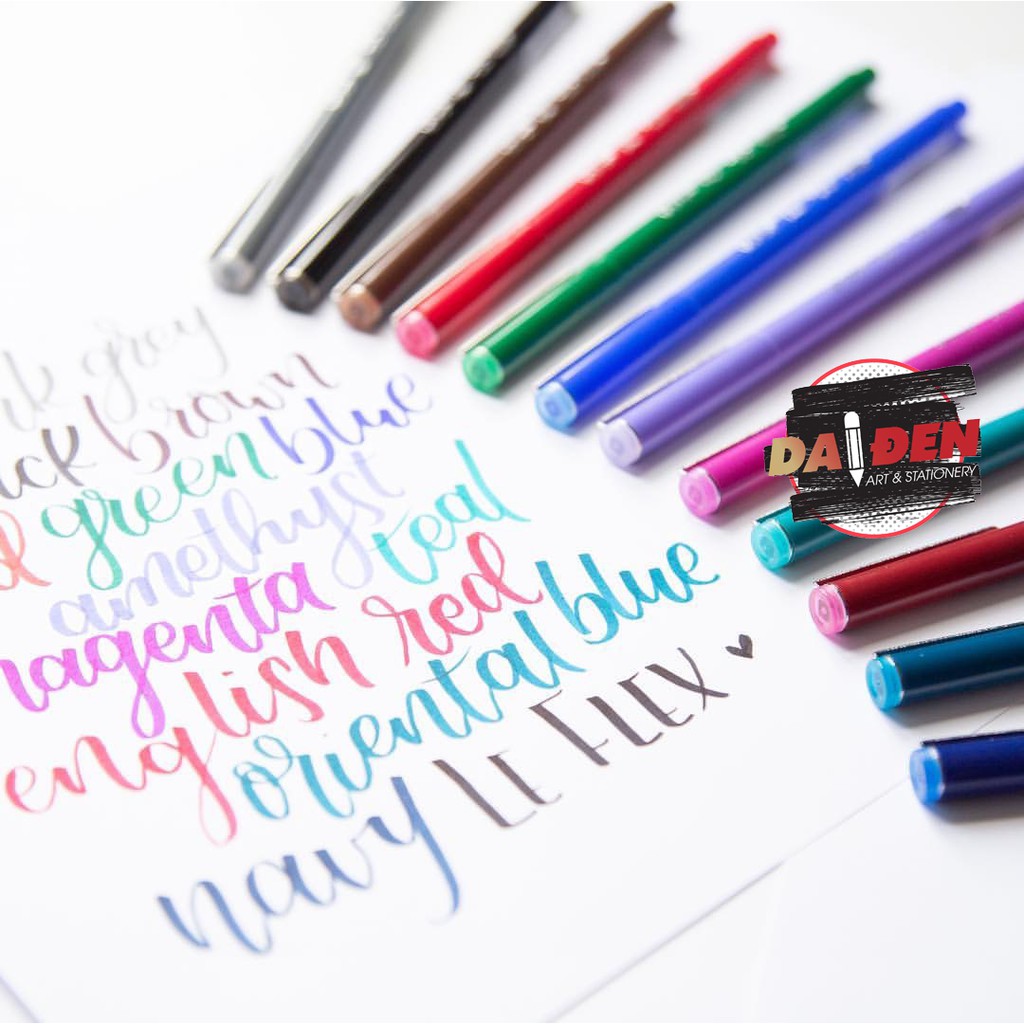 grey
brown
green blue
amethyst
teal
english red
oriental blue
navy LE FLEX
DAI ĐEN
ART & STATIONERY